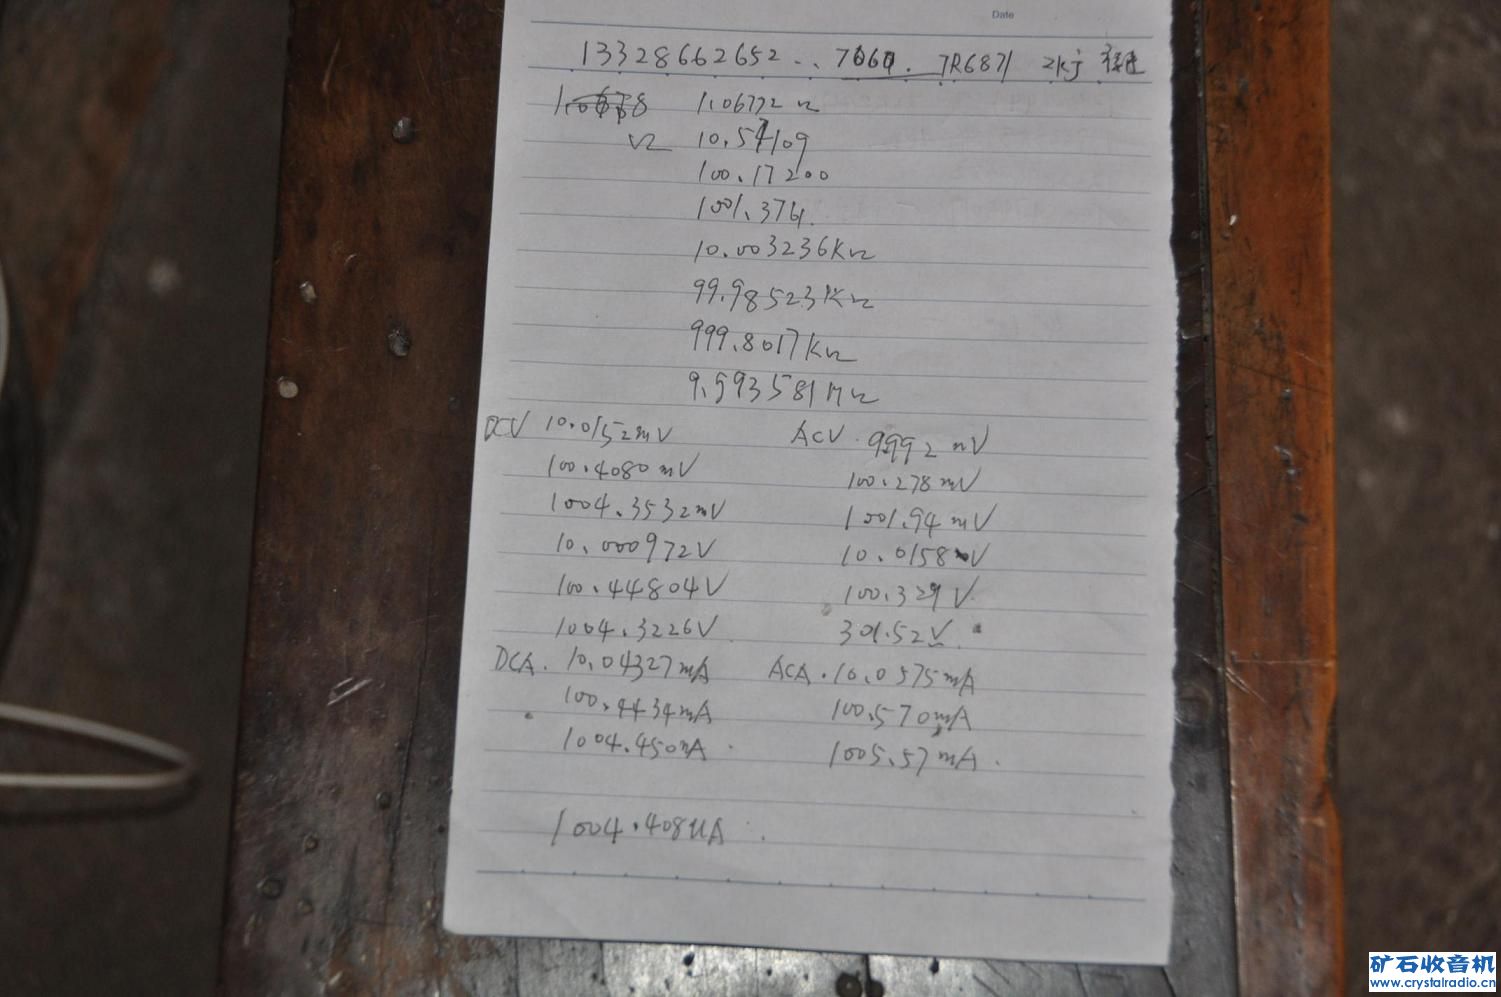 Date
13328662652 .. 7061. TR6871 2kj
1.06772 Ω
Ω 10.54109
100.17200
1001.374.
10.003236KΩ
99.98523KΩ
999.8017KΩ
9.993581MΩ
DCV 10.0152mV ACV. 9.992 mV
100.4080 mV 100.278 mV
1004.3532mV 1001.94 mV
10.000972V 10.0158 V
100.44804V 100.329 V
1004.3226V 301.52V.
DCA. 10.04327mA ACA. 10.0575mA
100.4434mA 100.570mA
1004.450mA 1005.57mA.
1004.408uA
矿石收音机
www.crystalradio.cn